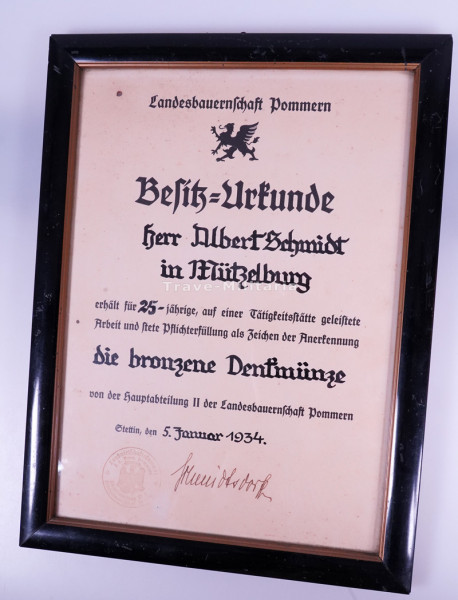 Landesbauernschaft Pommern
Besitz=Urkunde
Herr Albert Schmidt
in Mützelburg
Trave-Militaria
erhält für 25-jährige, auf einer Tätigkeitsstätte geleistete
Arbeit und stete Pflichterfüllung als Zeichen der Anerkennung
die bronzene Denkmünze
von der Hauptabteilung II der Landesbauernschaft Pommern
Stettin, den 5. Januar 1934.